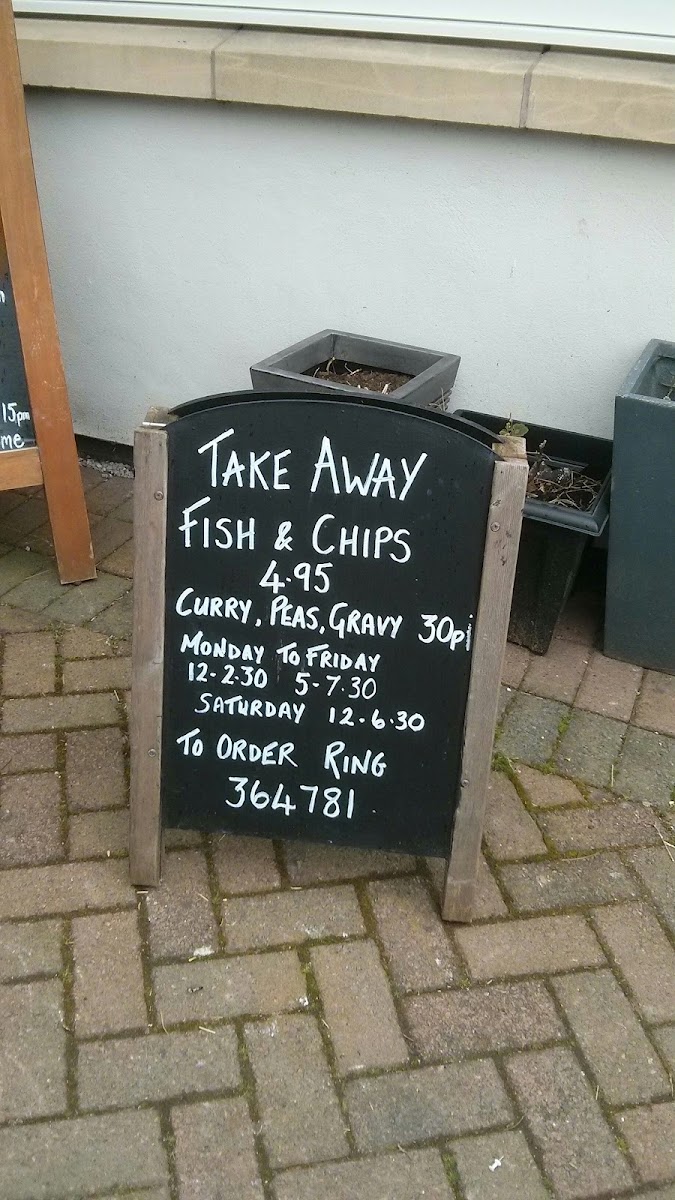 TAKE AWAY
FISH & CHIPS
4.95
CURRY, PEAS, GRAVY 30p
MONDAY TO FRIDAY
12-2.30 5-7.30
SATURDAY 12-6.30
TO ORDER RING
364781
15pm
me